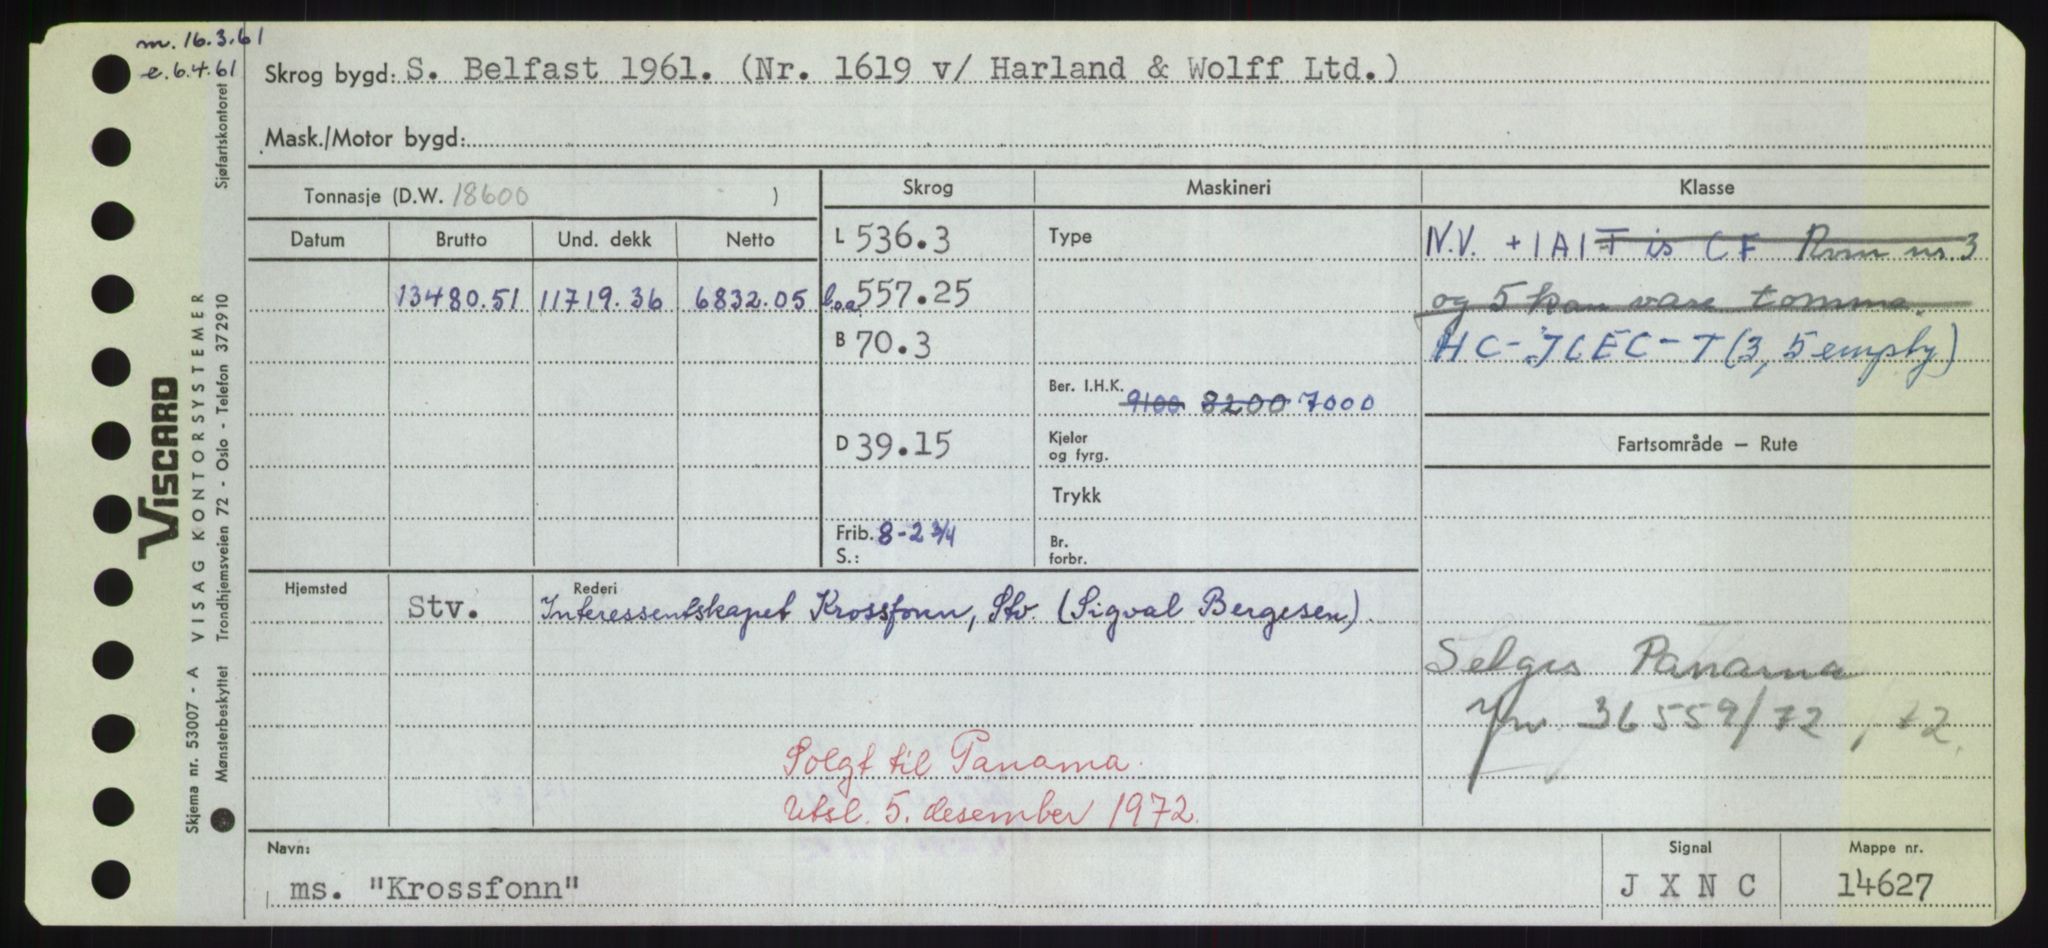 m. 16.3.61
e. 6.4.61
Skrog bygd: S. Belfast 1961. (Nr. 1619 v/ Harland & Wolff Ltd.)
Mask./Motor bygd:
Tonnasje (D.W. 18600 )
Skrog
Maskineri
Klasse
Datum
Brutto
Und. dekk
Netto
L 536.3
Type
N.V. +1A1 T is CF Rom nr. 3
13480.51 11719.36 6832.05
l.o.a 557.25
og 5 kan være tomme.
B 70.3
HC-JCEC-T (3, 5 empty)
Ber. I.H.K. 9100 8200 7000
D 39.15
Kjeler
og fyrg.
Fartsområde — Rute
Trykk
Frib. 8-2 3/4
S.:
Br.
forbr.
Hjemsted
Rederi
Stv.
Interessentskapet Krossfonn, Stv. (Sigval Bergesen).
Selges Panama
36559/72
Solgt til Panama.
Utsl. 5. desember 1972.
Navn:
ms. "Krossfonn"
Signal
J X N C
Mappe nr.
14627
VISCARD
Skjema nr. 53007 - A VISAG KONTORSYSTEMER
Mønsterbeskyttet Trondhjemsveien 72 - Oslo - Telefon 372910 Sjøfartskontoret